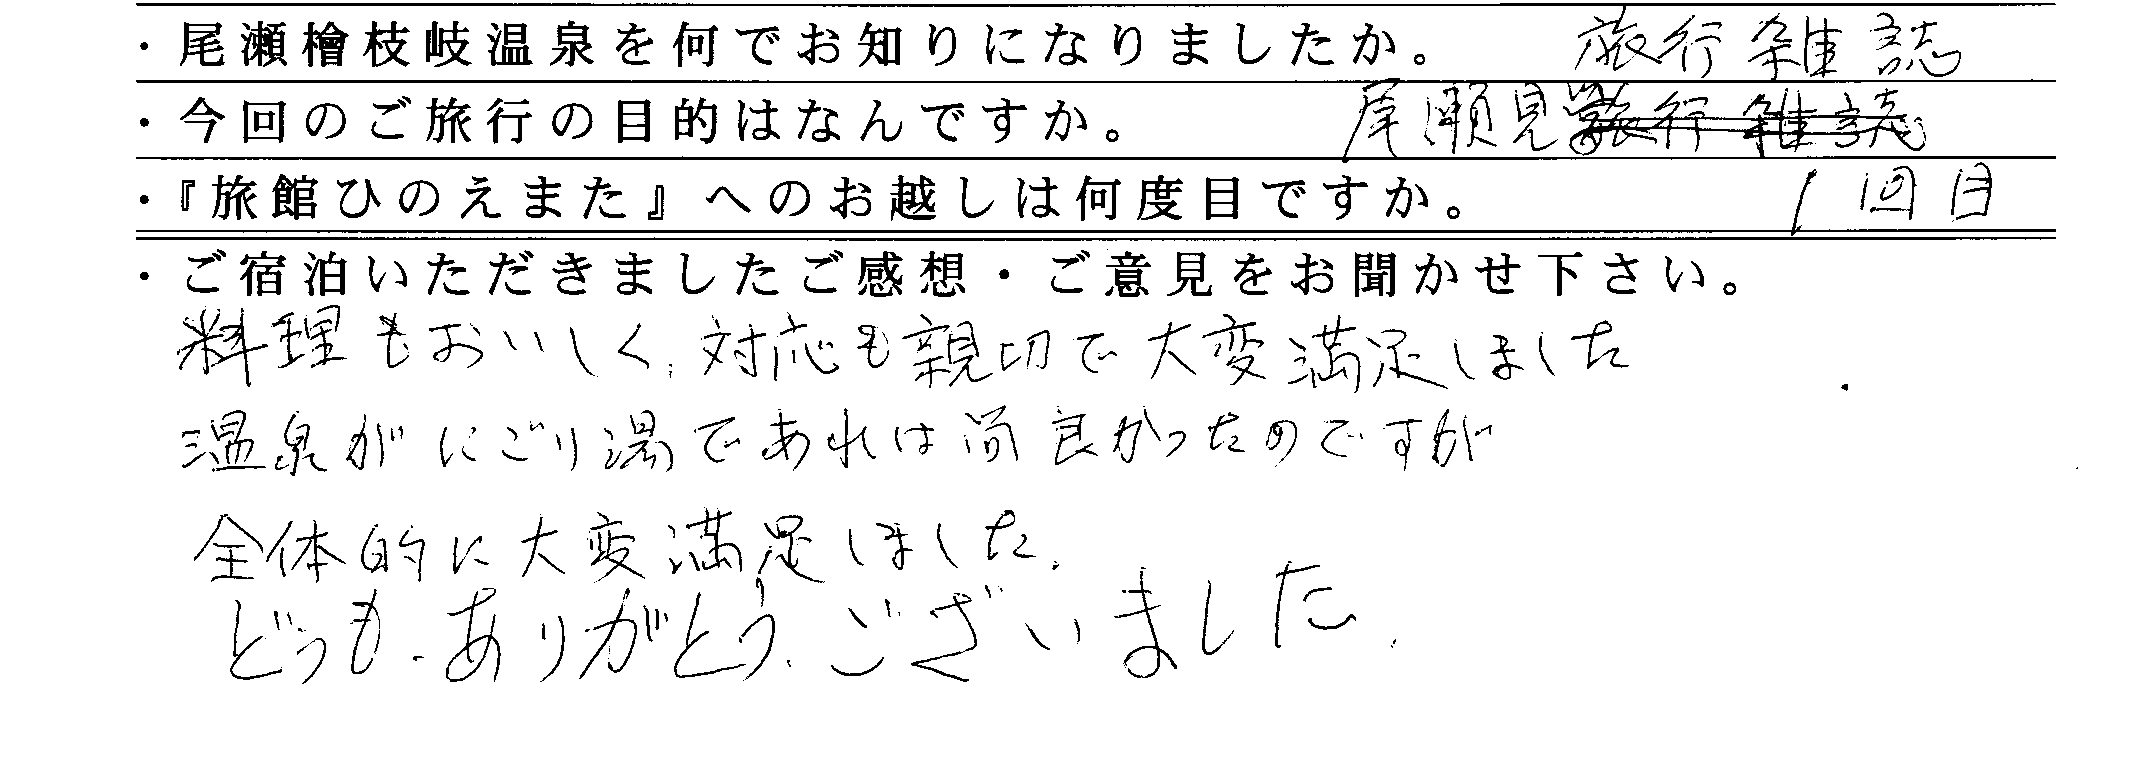 ・尾瀬檜枝岐温泉を何でお知りになりましたか。 旅行雑誌
・今回のご旅行の目的はなんですか。 尾瀬見学 旅行雑誌
・『旅館ひのえまた』へのお越しは何度目ですか。 1回目
・ご宿泊いただきましたご感想・ご意見をお聞かせ下さい。
料理もおいしく、対応も親切で大変満足しました
温泉がにごり湯であれば尚良かったのですが
全体的に大変満足しました.
どうも.ありがとう.ございました.